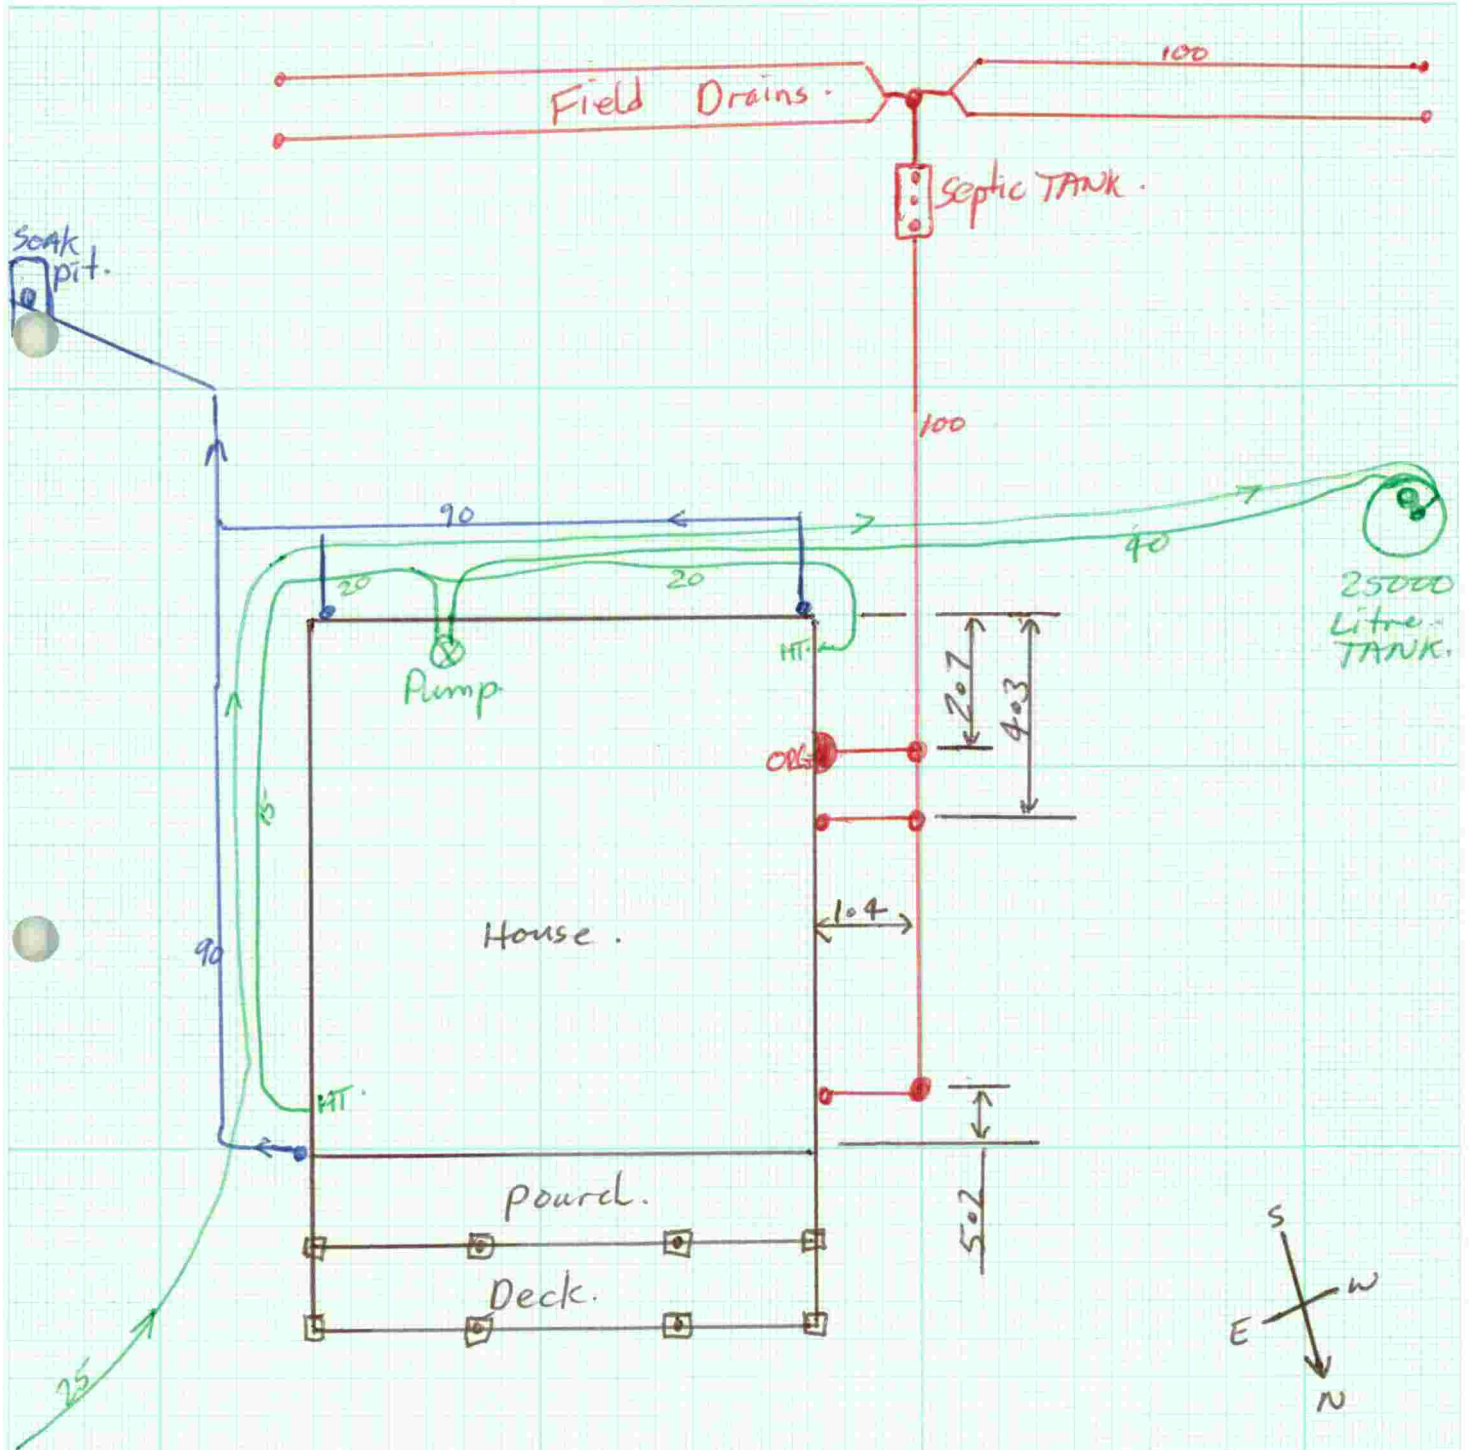 100
Field Drains.
Septic TANK.
Soak
pit.
100
90
40
20
20
25000
Litre
TANK.
HT.
Pump.
2.7
4.3
ORG
15
1.4
House.
90
HT.
Pourch.
5.2
Deck.
S
W
E
N
25